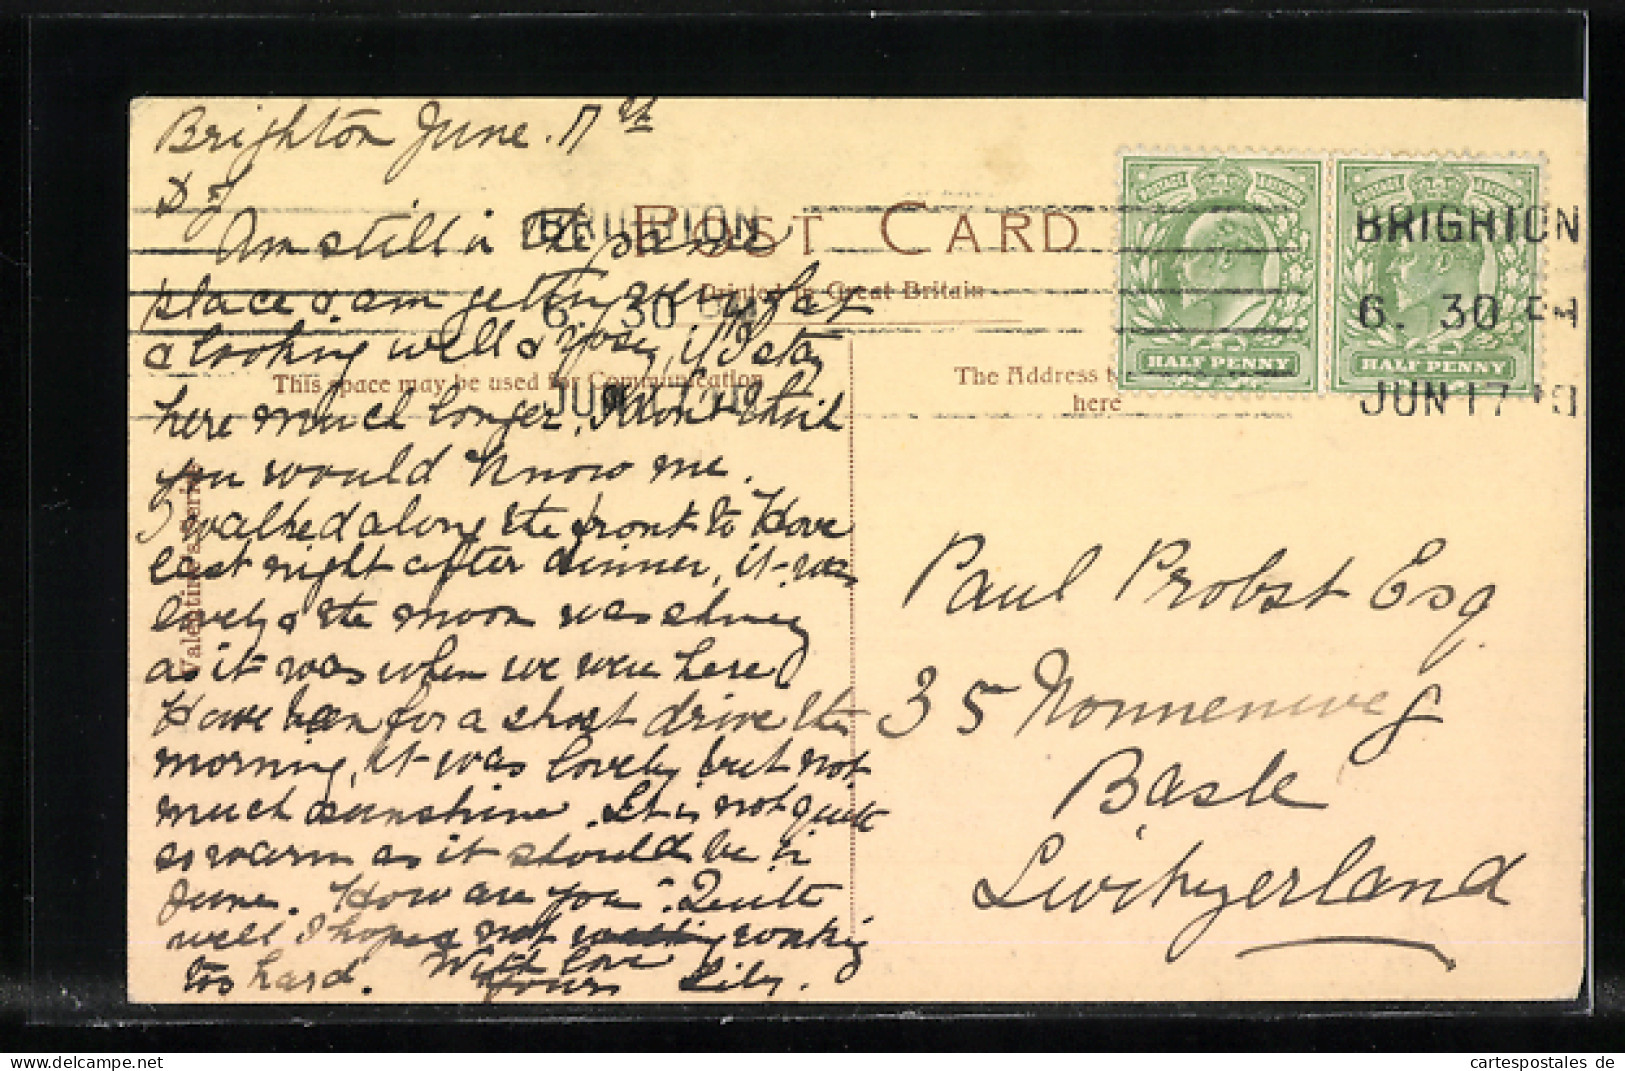 Brighton June. 17th
Am still in the same
place & am getting very fat
& looking well & rosy, if I stay
here much longer, I don't think
you would know me.
I walked along the front to Hove
last night after dinner, it was
lovely & the moon was shining
as it was when we were here
Have been for a short drive this
morning, it was lovely but not
much sunshine. It is not quite
as warm as it should be in
June. How are you? Quite
well I hope & not working
too hard. With love
Yours Lily.
POST CARD
Printed in Great Britain
This space may be used for Communication
The Address
here
Valentine's Series
BRIGHTON
6. 30 PM
JUN 17
HALF PENNY
HALF PENNY
BRIGHTON
6. 30 PM
JUN 17
Paul Probst Esq
35 Nonnenweg
Basle
Switzerland
cartespostales de